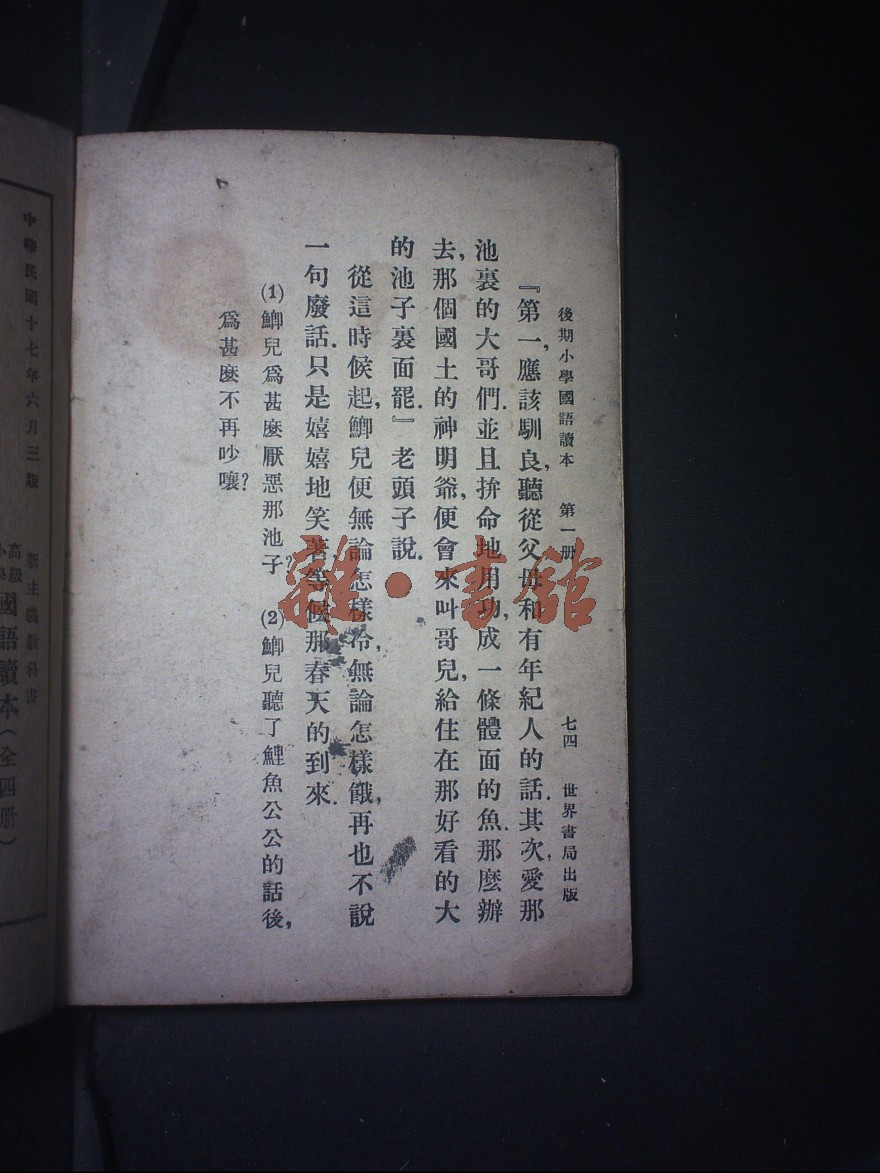 後期小學國語讀本 第一册 七四 世界書局出版
『第一,應該馴良,聽從父母和有年紀人的話.其次,愛那
池裏的大哥們.並且拚命地用功,成一條體面的魚.那麽辦
去,那個國土的神明爺,便會來叫哥兒,給住在那好看的大
的池子裏面罷.』老頭子說.
從這時候起,鯽兒便無論怎樣冷,無論怎樣餓,再也不說
一句廢話.只是嬉嬉地笑著,等候那春天的到來.
(1)鯽兒爲甚麽厭惡那池子? (2)鯽兒聽了鯉魚公公的話後,
爲甚麽不再吵嚷?
雜·書館
新主義教科書
高級小學 國語讀本(全四册)
中華民國十七年六月三版